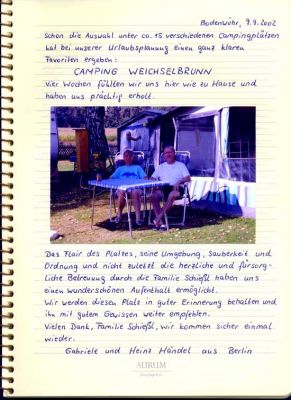 Bodenwöhr, 9.9.2002
Schon die Auswahl unter ca. 15 verschiedenen Campingplätzen
hat bei unserer Urlaubsplanung einen ganz klaren
Favoriten ergeben:
CAMPING WEICHSELBRUNN
Vier Wochen fühlten wir uns hier wie zu Hause und
haben uns prächtig erholt.
Das Flair des Platzes, seine Umgebung, Sauberkeit und
Ordnung und nicht zuletzt die herzliche und fürsorg-
liche Betreuung durch die Familie Schießl haben uns
einen wunderschönen Aufenthalt ermöglicht.
Wir werden diesen Platz in guter Erinnerung behalten und
ihn mit gutem Gewissen weiter empfehlen.
Vielen Dank, Familie Schießl, wir kommen sicher einmal
wieder.
Gabriele und Heinz Händel aus Berlin
AURUM